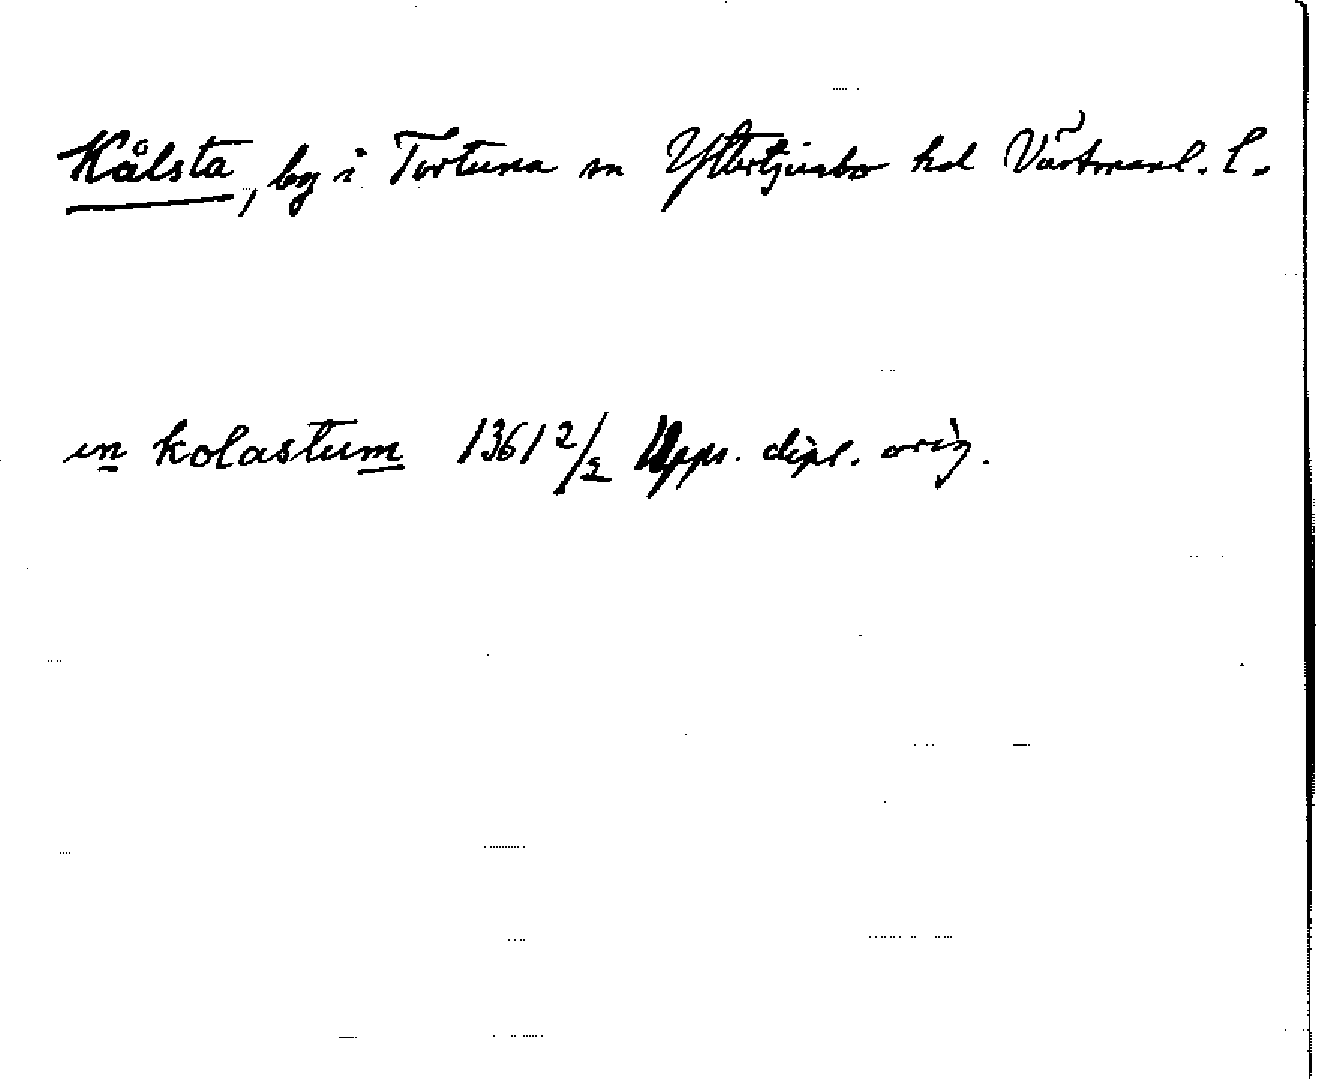 Kålsta, by i Tortuna sn Yttertjurbo hd Västmanl. l.
in kolastum 1361 2/2 Upps. dipl. orig.